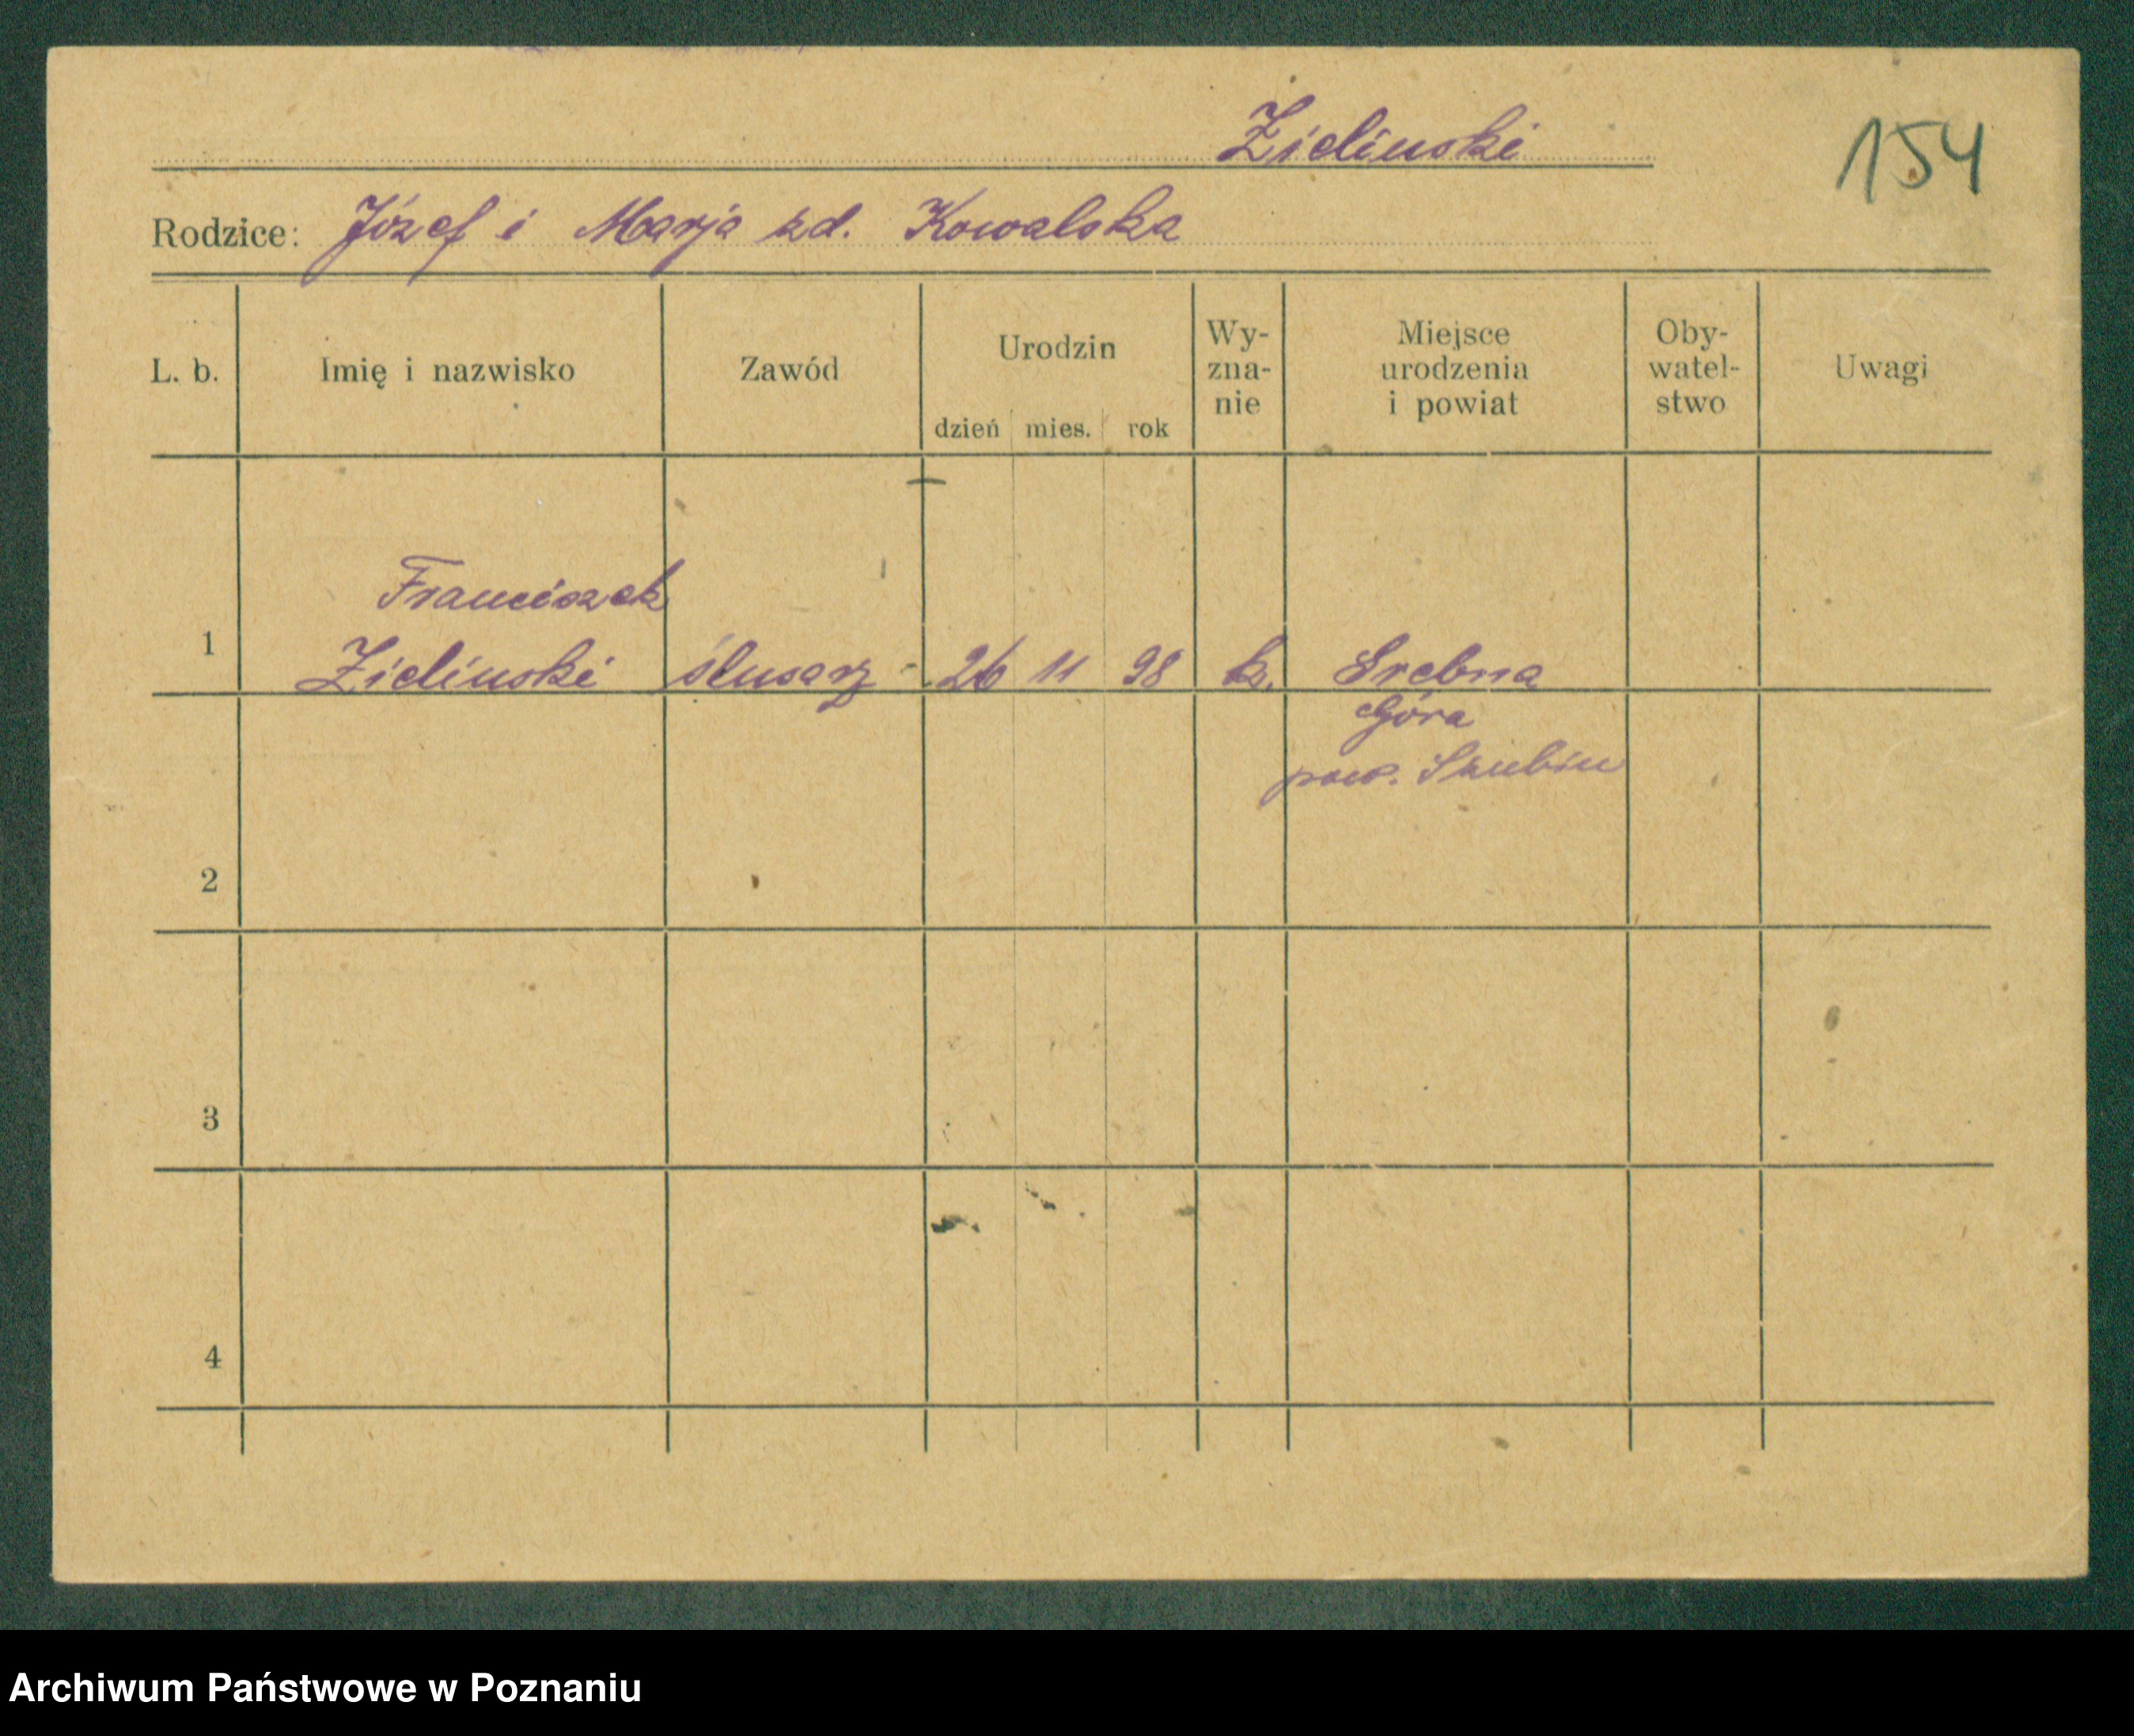 Zieliński
154
Rodzice: Józef i Marja zd. Kowalska
L. b. Imię i nazwisko Zawód Urodzin dzień mies. rok Wy-zna-nie Miejsce urodzenia i powiat Oby-watel-stwo Uwagi
Franciszek
1 Zieliński ślusarz 26 11 98 k. Srebna
Góra
pow. Szubin
2
3
4
Archiwum Państwowe w Poznaniu